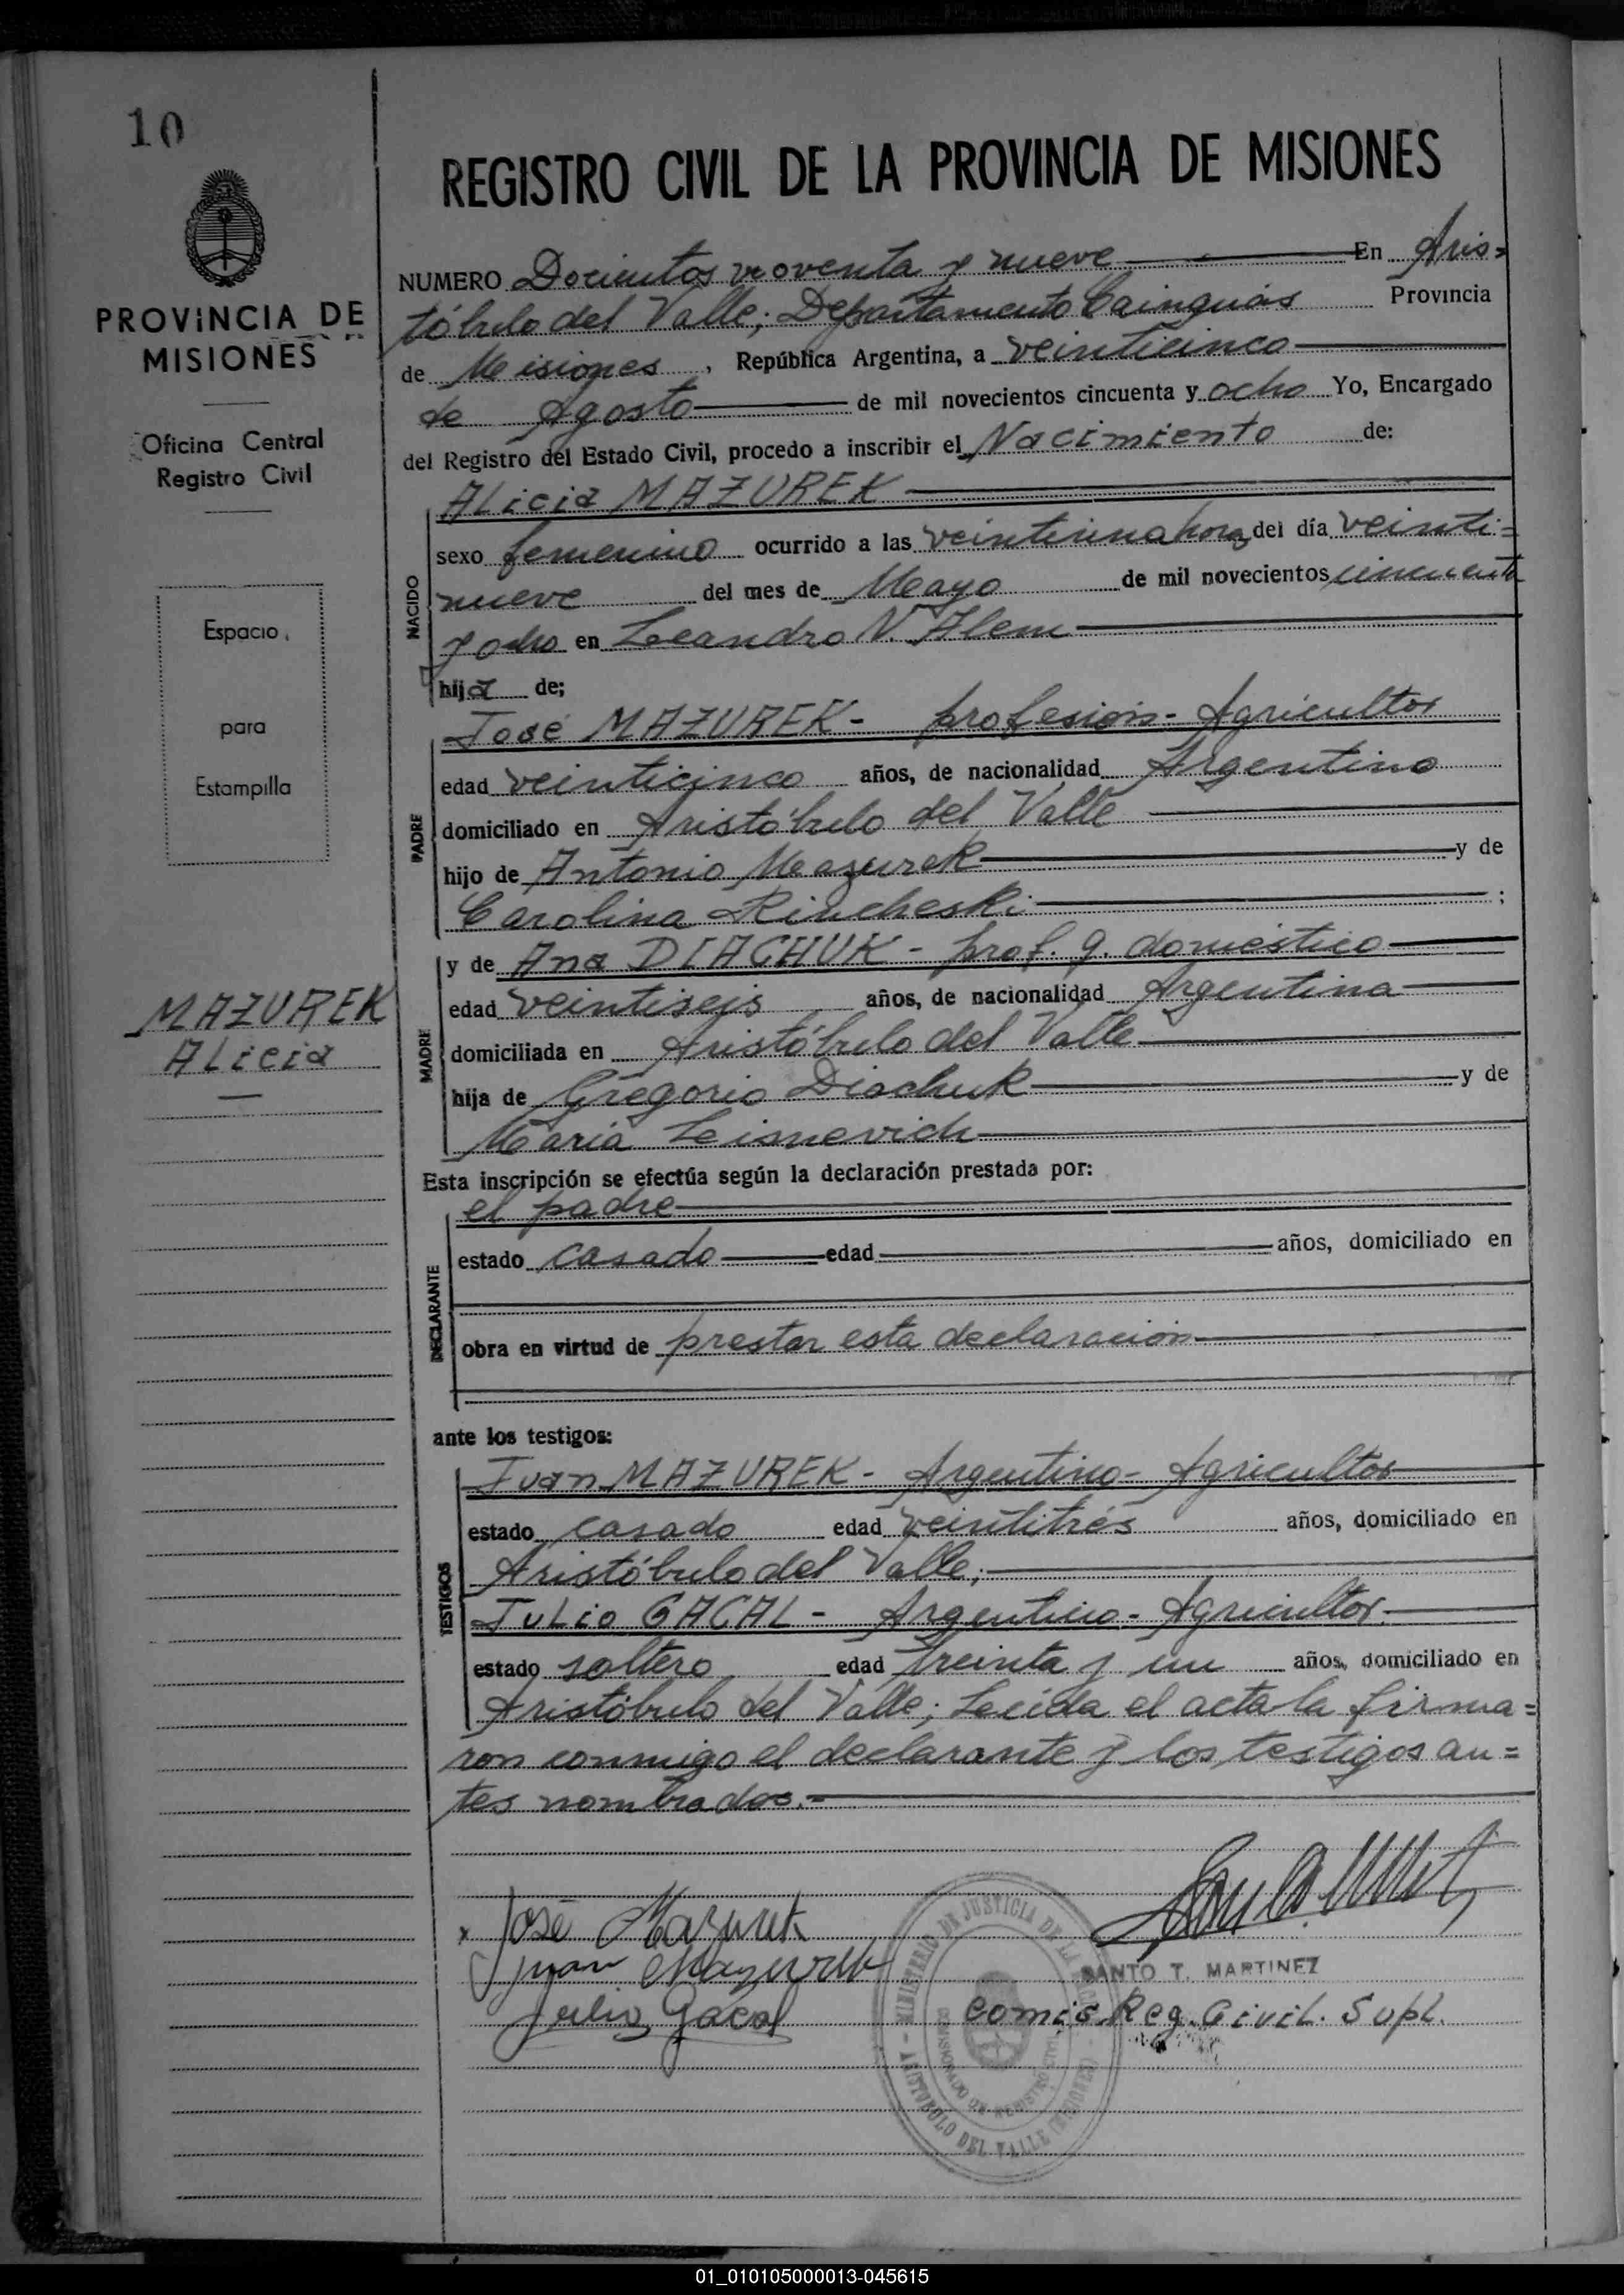 10
PROVINCIA DE
MISIONES
Oficina Central
Registro Civil
Espacio
para
Estampilla
MAZUREK
ALicia
REGISTRO CIVIL DE LA PROVINCIA DE MISIONES
NUMERO Docientos noventa y nueve En Aris=
tóbulo del Valle; Departamento Cainguás Provincia
de Misiones, República Argentina, a veinticinco
de Agosto de mil novecientos cincuenta y ocho Yo, Encargado
del Registro del Estado Civil, procedo a inscribir el Nacimiento de:
ALicia MAZUREK
NACIDO
sexo femenino ocurrido a las veintiuna horas del día veinti=
nueve del mes de Mayo de mil novecientos cincuenta
y ocho en Leandro N. Alem
hija de;
PADRE
José MAZUREK - profesión - Agricultor
edad veinticinco años, de nacionalidad Argentino
domiciliado en Aristóbulo del Valle
hijo de Antonio Mazurek y de
Carolina Rincheski ;
MADRE
y de Ana DIACHUK - prof. q. doméstico
edad veintiseis años, de nacionalidad Argentina
domiciliada en Aristóbulo del Valle
hija de Gregorio Diachuk y de
María Leisnevich
Esta inscripción se efectúa según la declaración prestada por:
DECLARANTE
el padre
estado casado edad años, domiciliado en
obra en virtud de prestar esta declaración
ante los testigos:
TESTIGOS
Juan MAZUREK - Argentino - Agricultor
estado casado edad veintitrés años, domiciliado en
Aristóbulo del Valle;
JuLio GACAL - Argentino - Agricultor.
estado soltero edad treinta y un años, domiciliado en
Aristóbulo del Valle; Leída el acta la firma=
ron conmigo el declarante y los testigos an=
tes nombrados.-
x José Mazurek
Juan Mazurek
Julio Gacal
SANTO T. MARTINEZ
Comis. Reg. Civil. Supl.
MINISTERIO DE JUSTICIA DE LA
ARISTOBULO DEL VALLE (MISIONES)
01_010105000013-045615